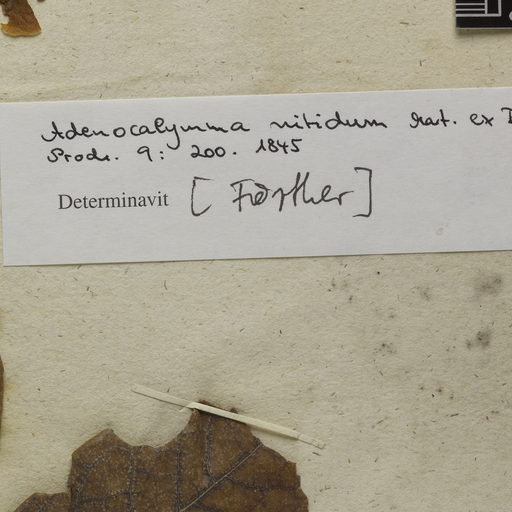 Adenocalymma nitidum Mart. ex
Prodr. 9: 200. 1845
Determinavit [Förther]